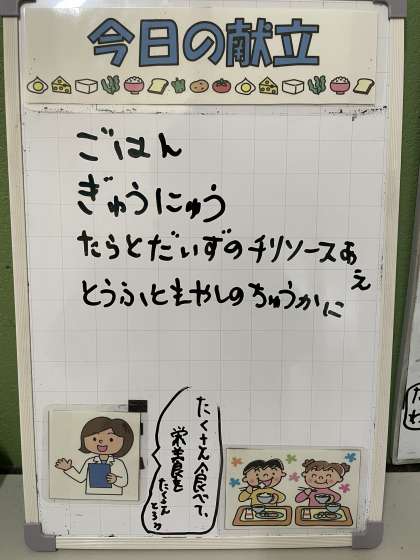 今日の献立
ごはん
ぎゅうにゅう
たらとだいずのチリソースあえ
とうふともやしのちゅうかに
たくさん食べて、
栄養を